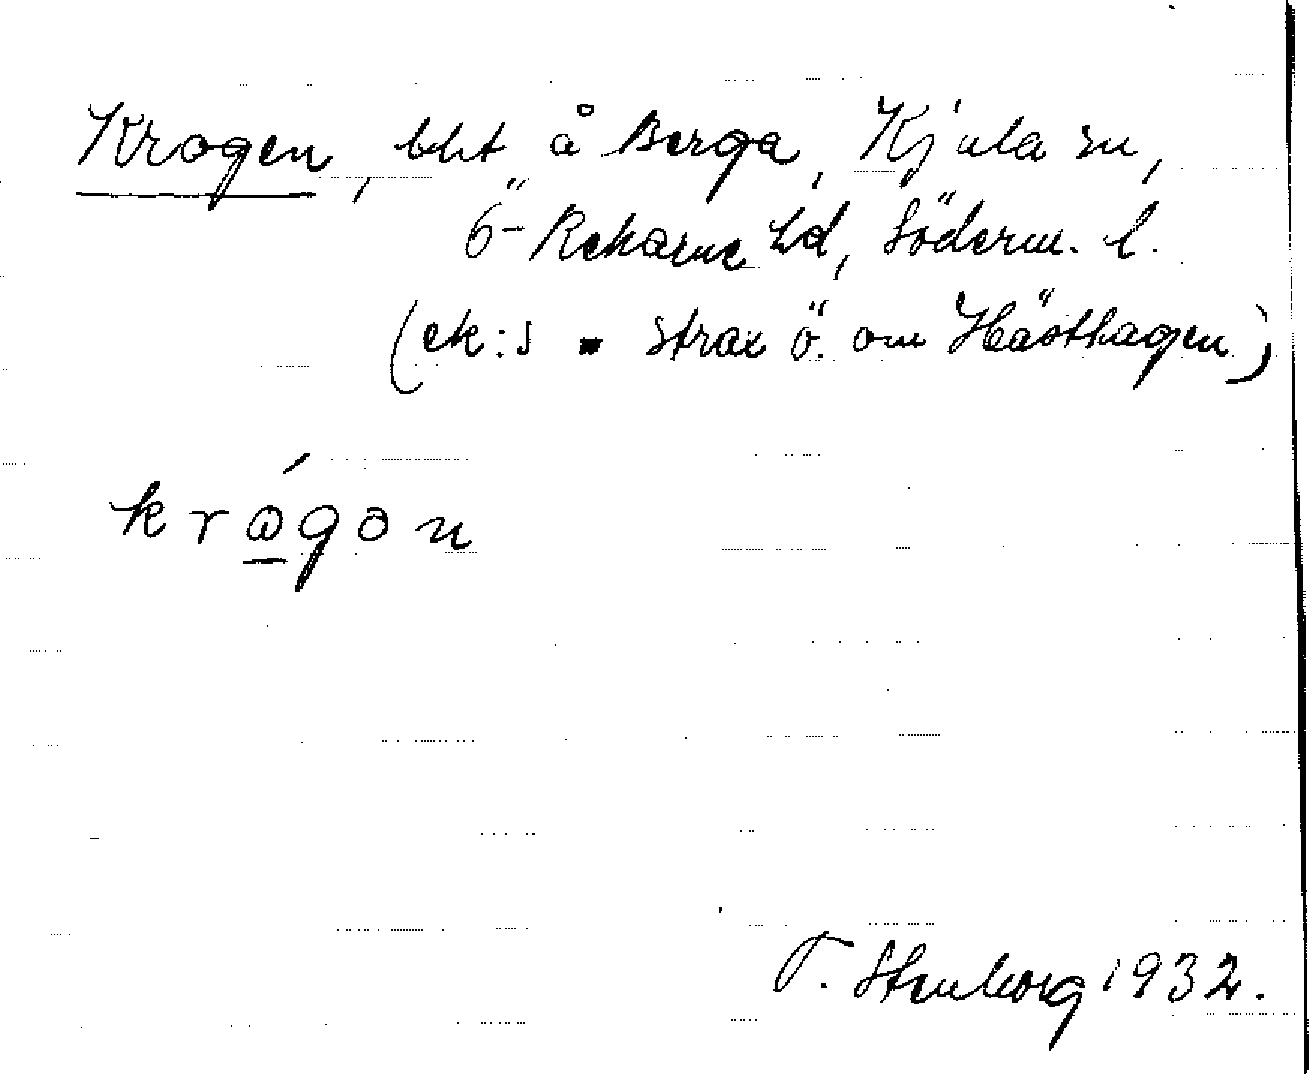 Krogen, bht å Berga, Kjula sn,
Ö-Rekarne hd, Söderm. l.
(ek:s strax ö. om Hästhagen)
T. Stenborg 1932.